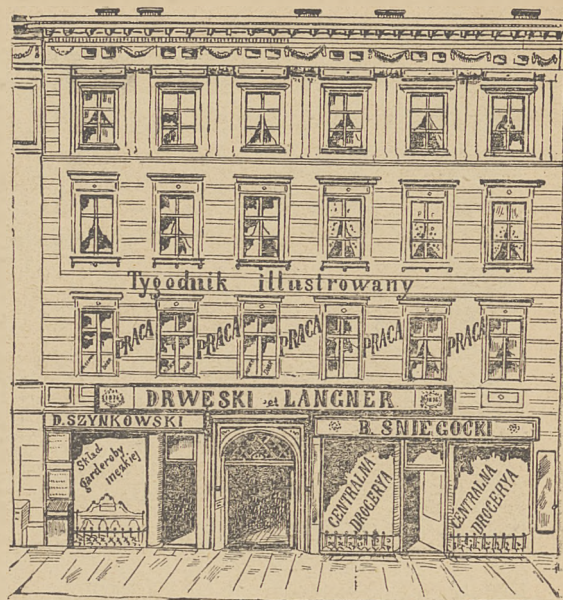 Tygodnik illustrowany
PRACA PRACA PRACA PRACA PRACA
DRWĘSKI et LANGNER
D. SZYNKOWSKI
B. SNIEGOCKI
Skład
garderoby
męzkiej
CENTRALNA
DROGERYA
CENTRALNA
DROGERYA